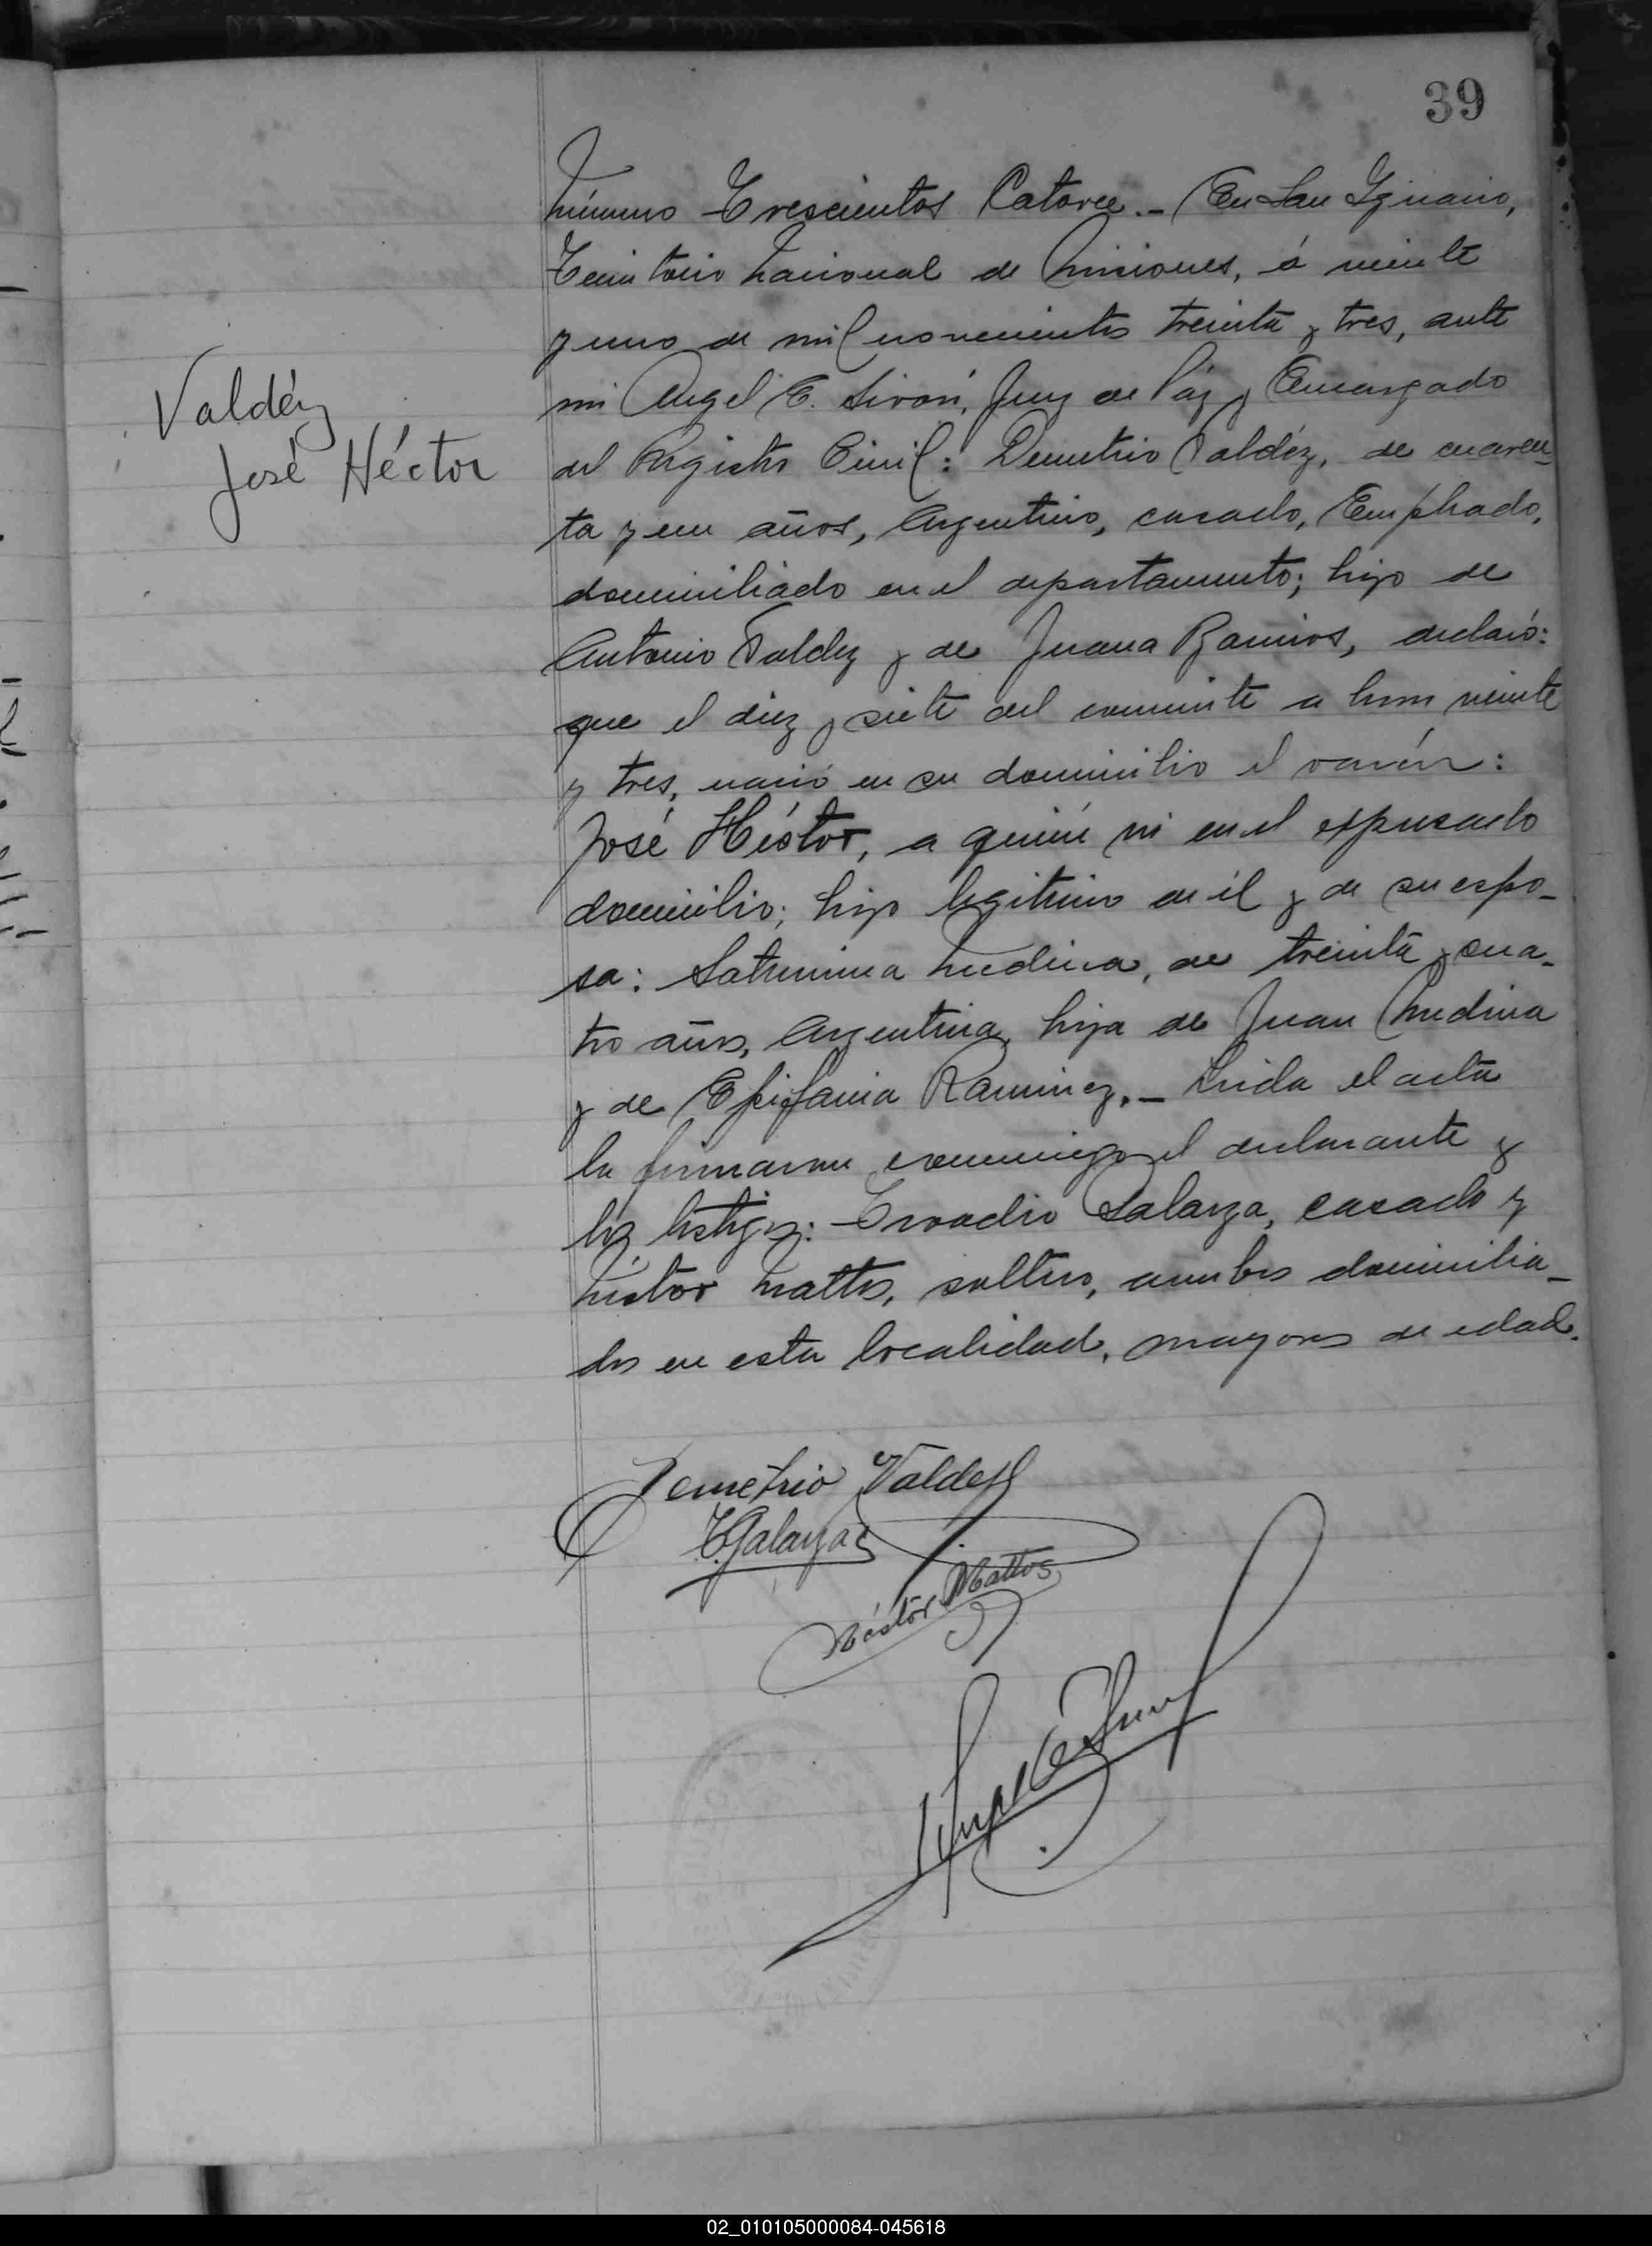 39
Número Trescientos Catorce.- En San Ignacio,
Territorio Nacional de Misiones, á veinte
y uno de mil novecientos treinta y tres, ante
mi Angel E. Juez de Páz y Encargado
del Registro Civil: Demetrio Valdéz, de cuaren-
ta y un años, Argentino, casado, Empleado,
domiciliado en el departamento; hijo de
Antonio Valdez y de Juana Ramirez, declaró:
que el diez y siete del corriente a horas veinte
y tres, nació en su domicilio el varón:
José Héctor, a quién vi en el expresado
domicilio; hijo legitimo de él y de su espo-
sa: Saturnina Medina, de treinta y cua-
tro años, Argentina, hija de Juan Medina
y de Epifania Ramirez.- Leida el acta
la firmaron conmigo el declarante y
los testigos: Galarza, casado y
Néstor Mattos, soltero, ambos domicilia-
dos en esta localidad, mayores de edad.
Valdéz
José Héctor
Demetrio Valdez
T. Galarza
Néstor Mattos
02_010105000084-045618